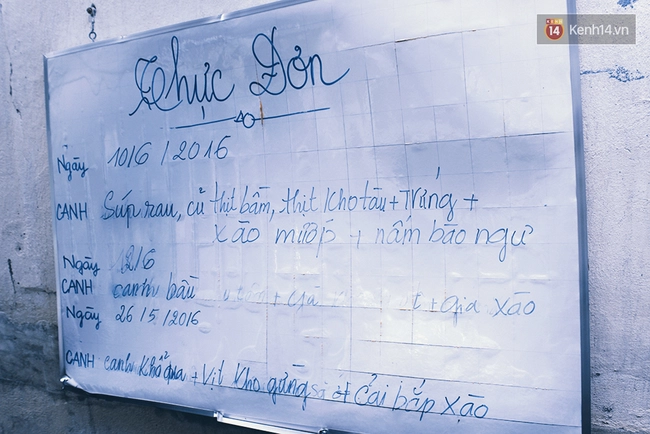 14 Kenh14.vn
Thực Đơn
Ngày 10/6/2016
CANH Súp rau, củ thịt bằm, thịt kho tàu + Trứng +
xào mướp + nấm bào ngư
Ngày 12/6
CANH canh bầu + giá xào
Ngày 26/5/2016
CANH canh Khổ qua + Vịt kho gừng cải bắp xào